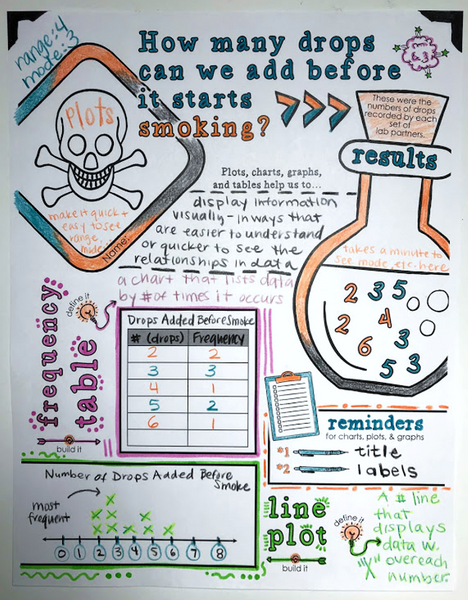 range: 4
mode: 3
How many drops
can we add before
it starts
smoking?
Plots
make it quick +
easy to see
range,
mode
Name:
These were the
numbers of drops
recorded by each
set of
lab partners.
results
takes a minute to
see mode, etc. here
2 3 5
2 4
6 3
5 3
Plots, charts, graphs,
and tables help us to...
display information
visually - in ways that
are easier to understand
or quicker to see the
relationships in data
a chart that lists data
by # of times it occurs
frequency
table
define it
build it
Drops Added Before Smoke
# (drops) Frequency
2 2
3 3
4 1
5 2
6 1
reminders
for charts, plots, & graphs
#1 title
#2 labels
Number of Drops Added Before
Smoke
most
frequent
x
x x x
x x x x x
0 1 2 3 4 5 6 7 8
line
plot
define it
build it
A # line
that
displays
data w.
"x" over each
number.